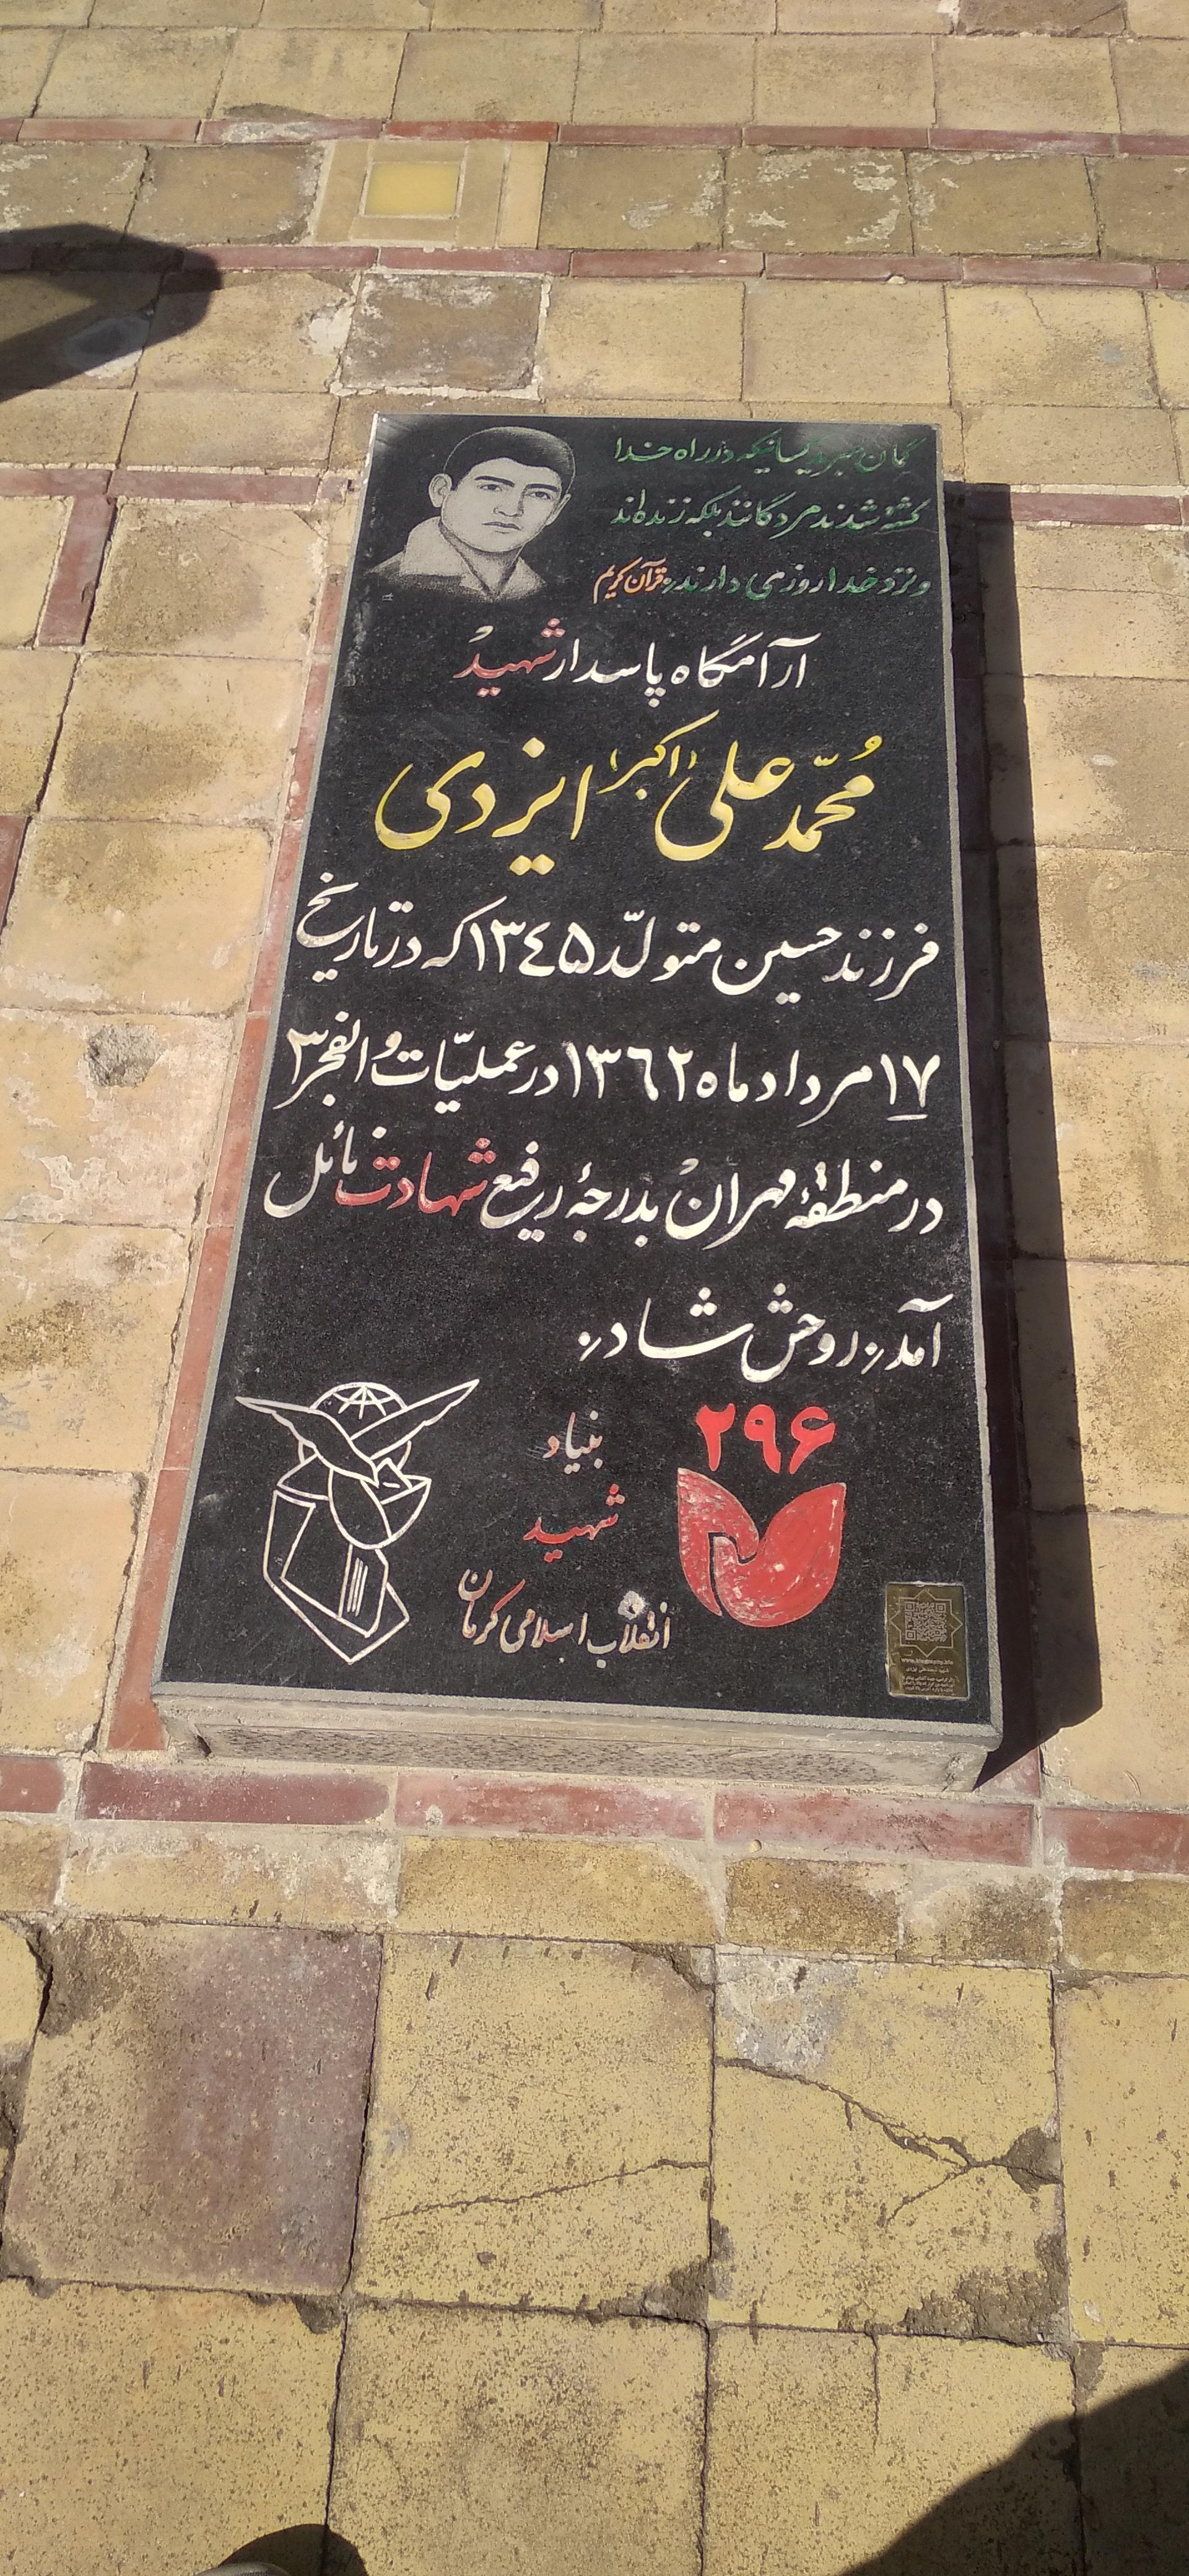 گمان مبرید کسانیکه در راه خدا
کشته شدند مردگانند بلکه زنده‌اند
و نزد خدا روزی دارند. قرآن کریم
آرامگاه پاسدار شهید
مُحمّد علی (اکبر) ایزدی
فرزند حسین متولّد ۱۳٤۵ که در تاریخ
۱۷ مرداد ماه ۱۳٦۲ در عملیّات والفجر ۳
در منطقهٔ مهران بدرجهٔ رفیع شهادت نائل
آمد. روحش شاد.
۲۹۶
بنیاد
شهید
انقلاب اسلامی کرمان